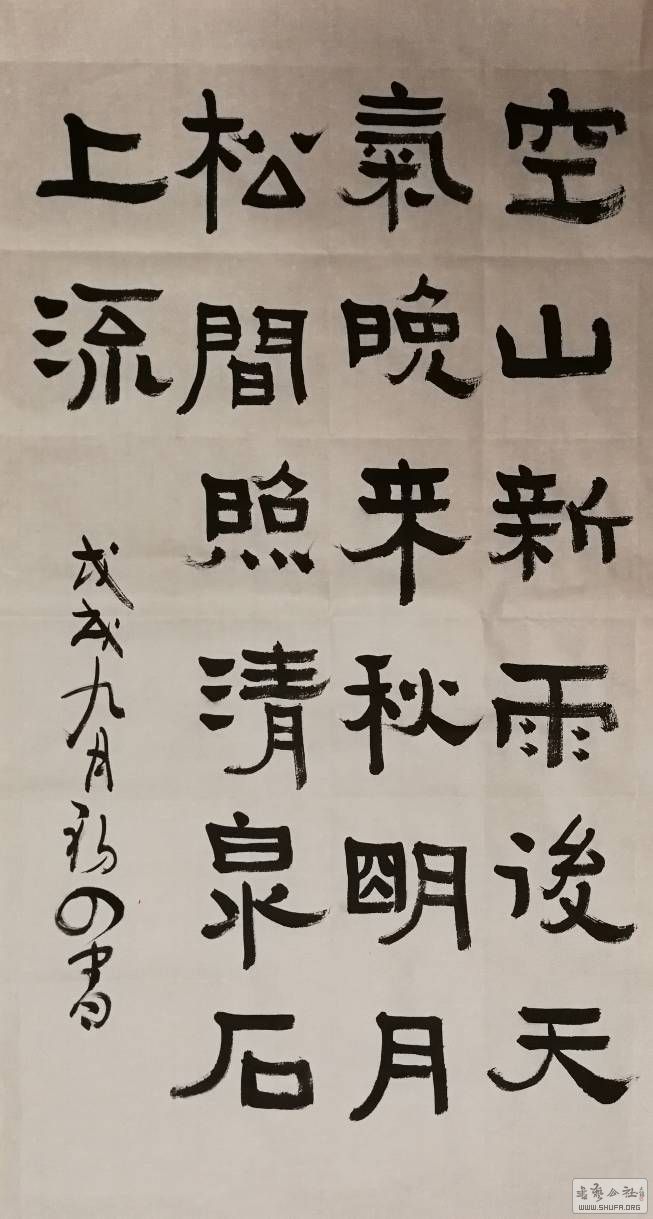 空山新雨後天
氣晚来秋明月
松間照清泉石
上流
戊戌九月書
书艺公社
WWW.SHUFA.ORG